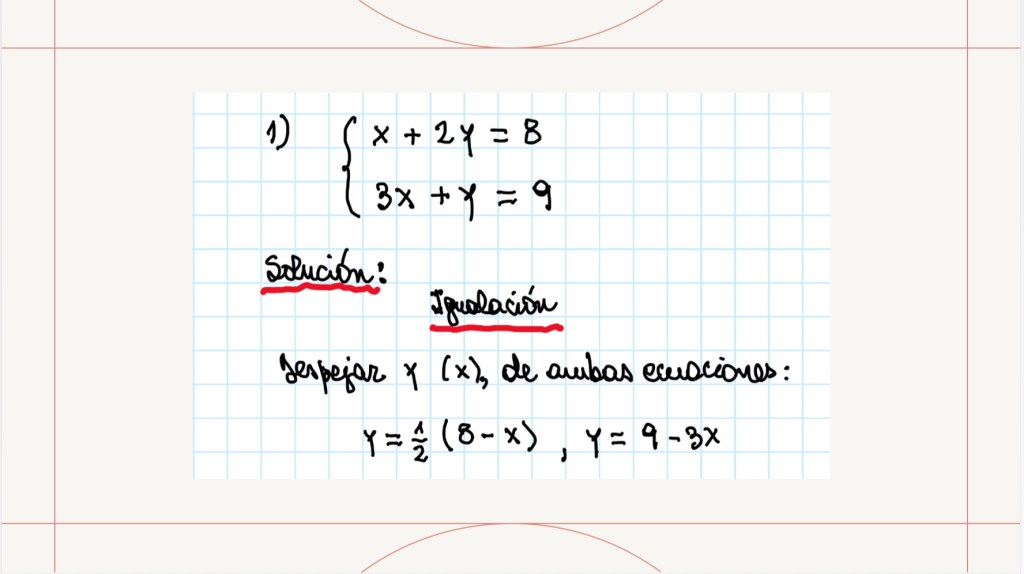 1) x + 2y = 8
3x + y = 9
Solución:
Igualación
Despejar y (x), de ambas ecuaciones:
y = 1/2 (8 - x) , y = 9 - 3x